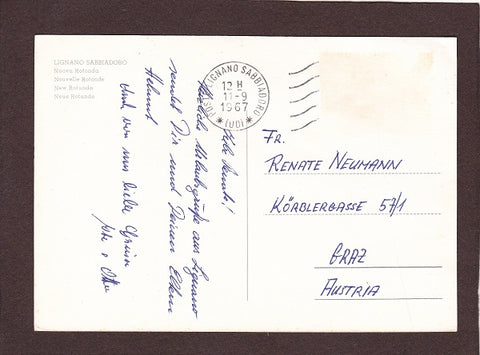 LIGNANO SABBIADORO
Nuova Rotonda
Nouvelle Rotonde
New Rotunda
Neue Rotunde
POSTE LIGNANO SABBIADORO
12 H
11-9
1967
* (UD) *
Herzliche Urlaubsgrüße aus Lignano
sendet Dir und Deinen Eltern
Helmut
Auch von uns liebe Grüsse
FR.
RENATE NEUMANN
KÖRBLERGASSE 57/1
GRAZ
AUSTRIA